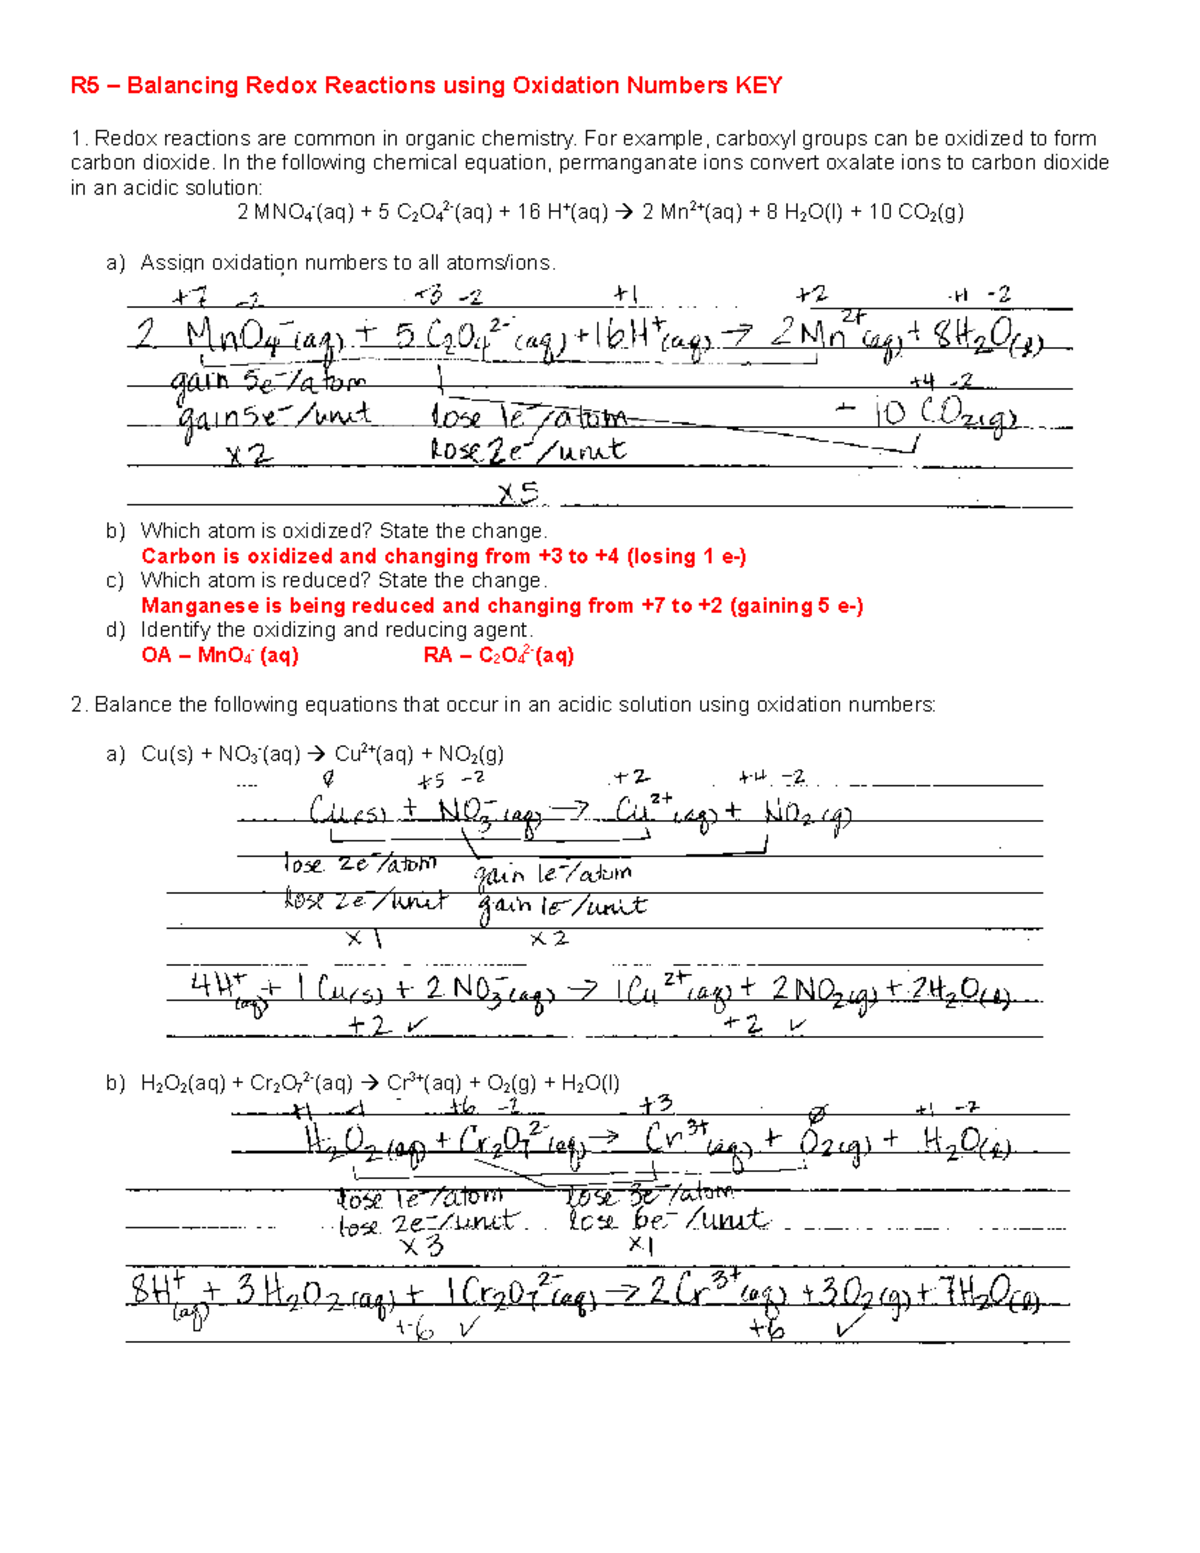 R5 – Balancing Redox Reactions using Oxidation Numbers KEY
1. Redox reactions are common in organic chemistry. For example, carboxyl groups can be oxidized to form
carbon dioxide. In the following chemical equation, permanganate ions convert oxalate ions to carbon dioxide
in an acidic solution:
2 MNO₄⁻(aq) + 5 C₂O₄²⁻(aq) + 16 H⁺(aq) → 2 Mn²⁺(aq) + 8 H₂O(l) + 10 CO₂(g)
a) Assign oxidation numbers to all atoms/ions.
+7 -2 +3 -2 +1 +2 +1 -2
2 MnO₄⁻(aq) + 5 C₂O₄²⁻(aq) + 16H⁺(aq) → 2Mn²⁺(aq) + 8H₂O(l)
gain 5e⁻/atom +4 -2
gain 5e⁻/unit lose 1e⁻/atom + 10 CO₂(g)
x 2 lose 2e⁻/unit
x 5
b) Which atom is oxidized? State the change.
Carbon is oxidized and changing from +3 to +4 (losing 1 e-)
c) Which atom is reduced? State the change.
Manganese is being reduced and changing from +7 to +2 (gaining 5 e-)
d) Identify the oxidizing and reducing agent.
OA – MnO₄⁻ (aq) RA – C₂O₄²⁻(aq)
2. Balance the following equations that occur in an acidic solution using oxidation numbers:
a) Cu(s) + NO₃⁻(aq) → Cu²⁺(aq) + NO₂(g)
0 +5 -2 +2 +4 -2
Cu(s) + NO₃⁻(aq) → Cu²⁺(aq) + NO₂(g)
lose 2e⁻/atom gain 1e⁻/atom
lose 2e⁻/unit gain 1e⁻/unit
x 1 x 2
4H⁺(aq) + 1Cu(s) + 2NO₃⁻(aq) → 1Cu²⁺(aq) + 2NO₂(g) + 2H₂O(l)
+2 ✓ +2 ✓
b) H₂O₂(aq) + Cr₂O₇²⁻(aq) → Cr³⁺(aq) + O₂(g) + H₂O(l)
+1 -1 +6 -2 +3 0 +1 -2
H₂O₂(aq) + Cr₂O₇²⁻(aq) → Cr³⁺(aq) + O₂(g) + H₂O(l)
lose 1e⁻/atom lose 3e⁻/atom
lose 2e⁻/unit lose 6e⁻/unit
x 3 x 1
8H⁺(aq) + 3H₂O₂(aq) + 1Cr₂O₇²⁻(aq) → 2Cr³⁺(aq) + 3O₂(g) + 7H₂O(l)
+6 ✓ +6 ✓